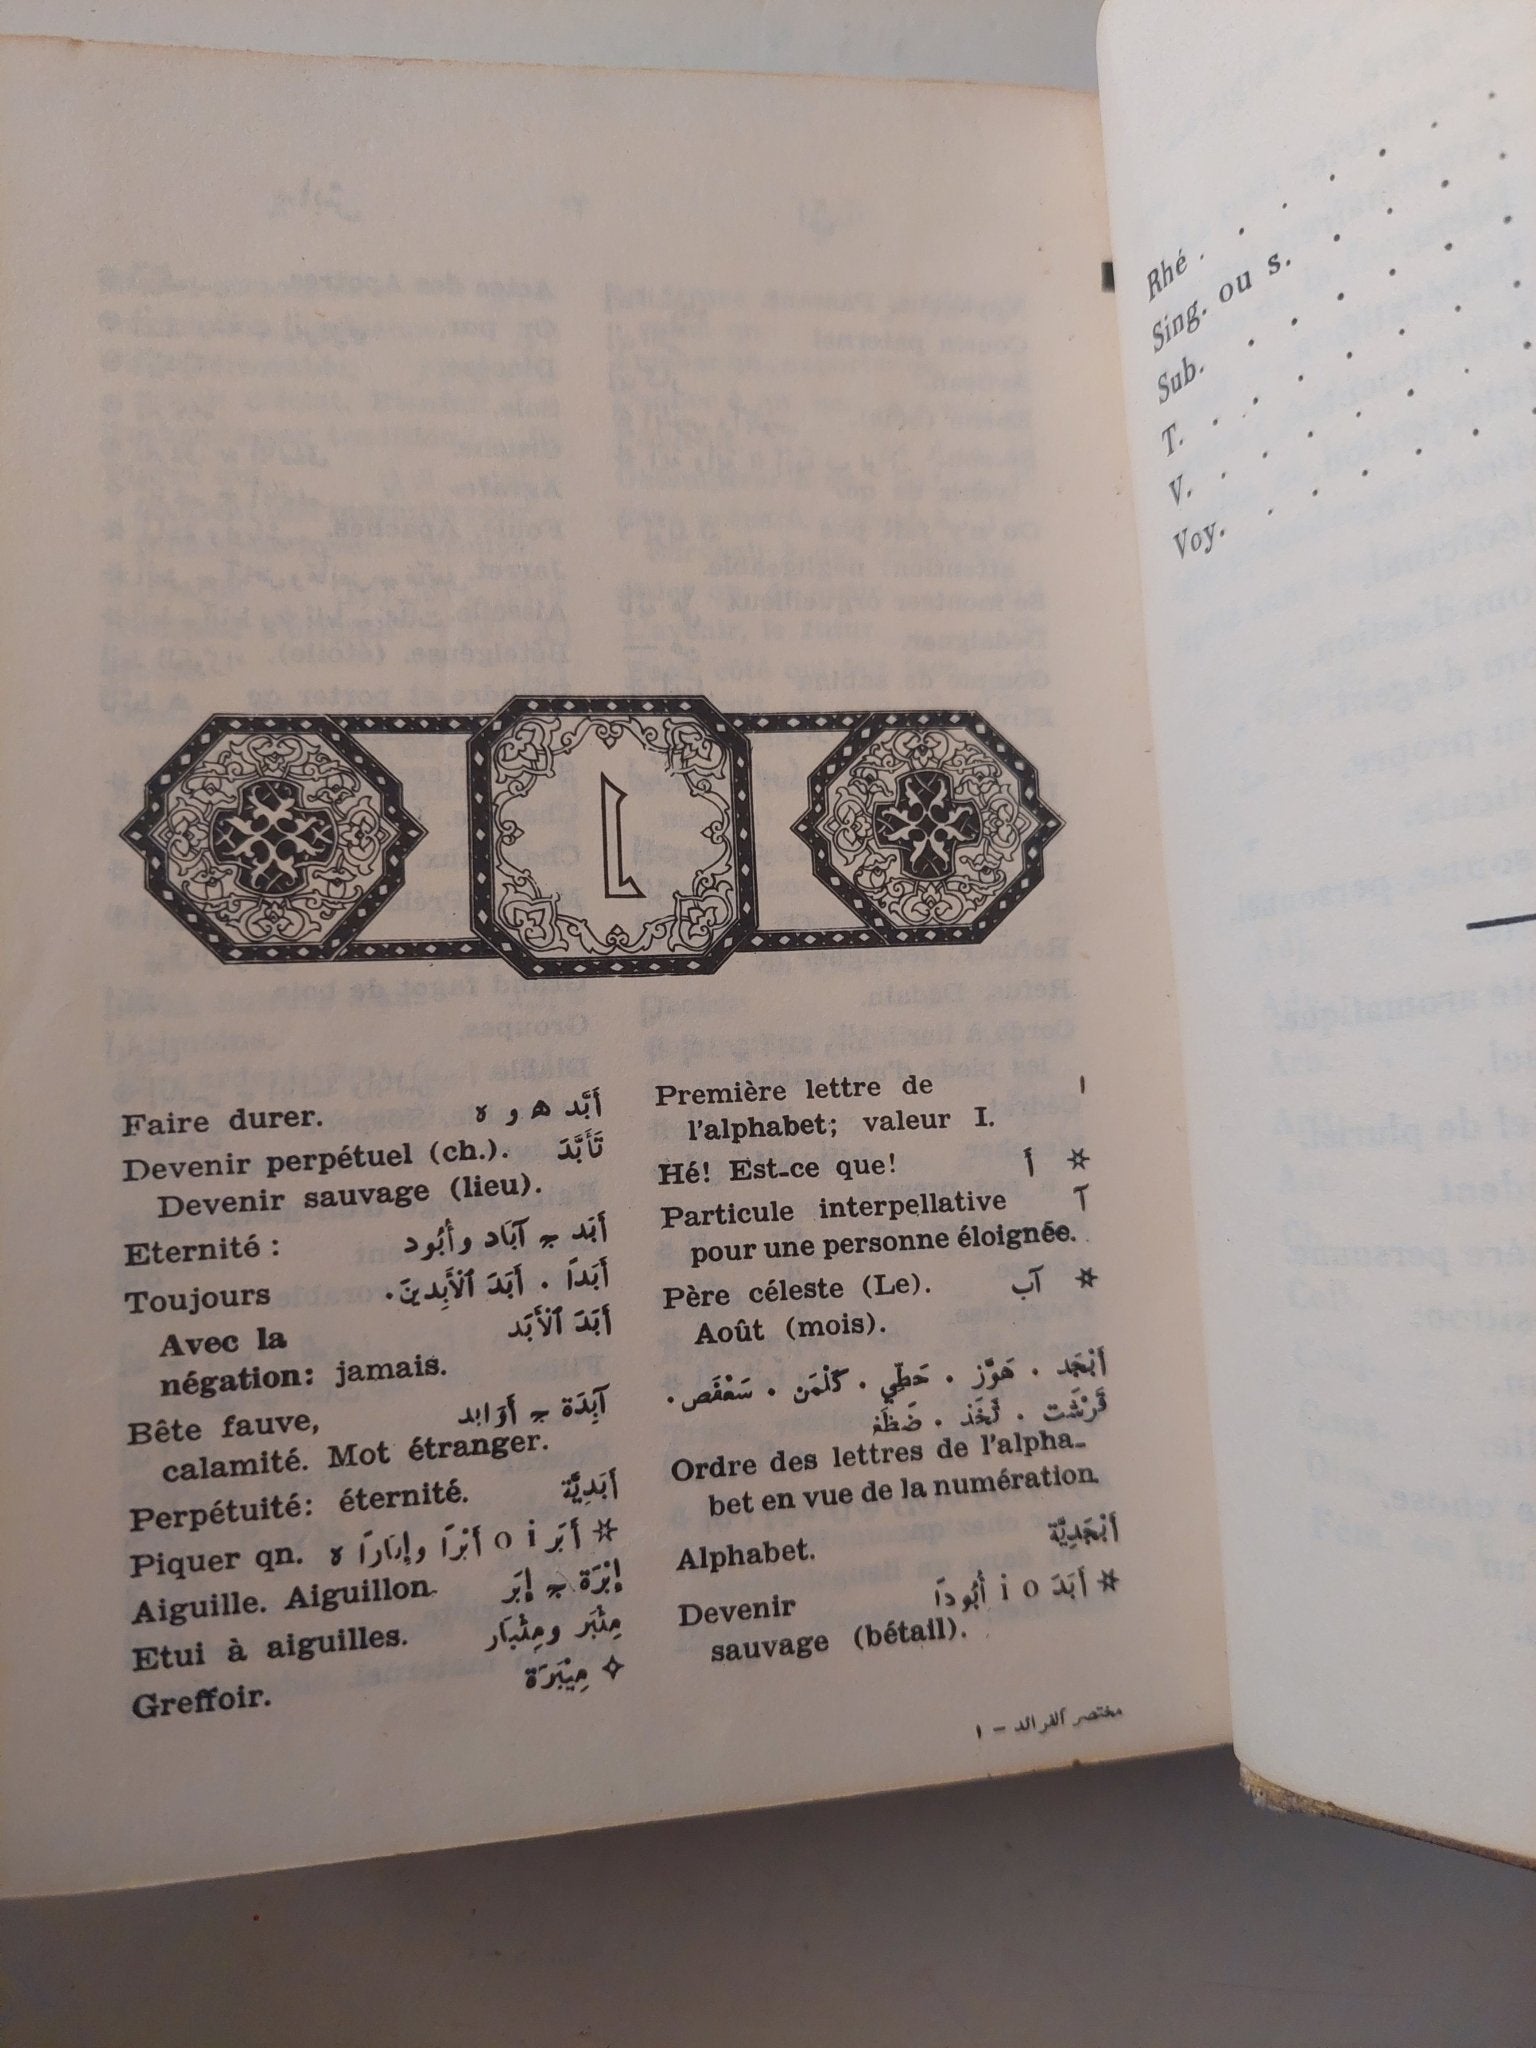 ا
ا Première lettre de
l'alphabet; valeur I.
* أ Hé! Est-ce que!
آ Particule interpellative
pour une personne éloignée.
* آب Père céleste (Le).
Août (mois).
أَبْجَد . هَوَّز . حَطِّي . كَلَمَن . سَعْفَص .
قَرْشَت . ثَخَذ . ضَظَغ
Ordre des lettres de l'alpha-
bet en vue de la numération.
أَبْجَدِيَّة Alphabet.
* أَبَدَ i o أُبُودًا Devenir
sauvage (bétail).
مختصر الفرائد - ١
أَبَّد ه و ه Faire durer.
تَأَبَّدَ Devenir perpétuel (ch.).
Devenir sauvage (lieu).
أَبَد ج آبَاد وأُبُود Eternité :
أَبَدًا . أَبَدَ ٱلْأَبِدينَ . Toujours
أَبَدَ ٱلْأَبَد Avec la
négation: jamais.
آبِدَة ج أَوَابِد Bête fauve,
calamité. Mot étranger.
أَبَدِيَّة Perpétuité: éternité.
* أَبَر i o أَبْرًا وإِبَارًا ه Piquer qn.
إِبْرَة ج إِبَر Aiguille. Aiguillon.
مِئْبَر ومِئْبَار Etui à aiguilles.
✧ مِيْبَرَة Greffoir.
Rhé .
Sing. ou s.
Sub.
T.
V.
Voy.